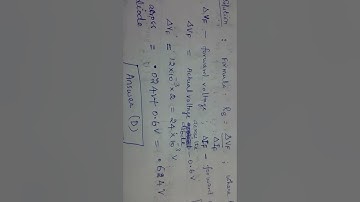 Solution : Formula RB = ΔVF / ΔIF ; where
ΔVF — forward voltage ; ΔIF — forward
ΔVF = Actual voltage across the diode − 0.6V
ΔVF = 12×10⁻³×2 = 24×10⁻³V
= .024+0.6V = .624V
diode
Answer (D)